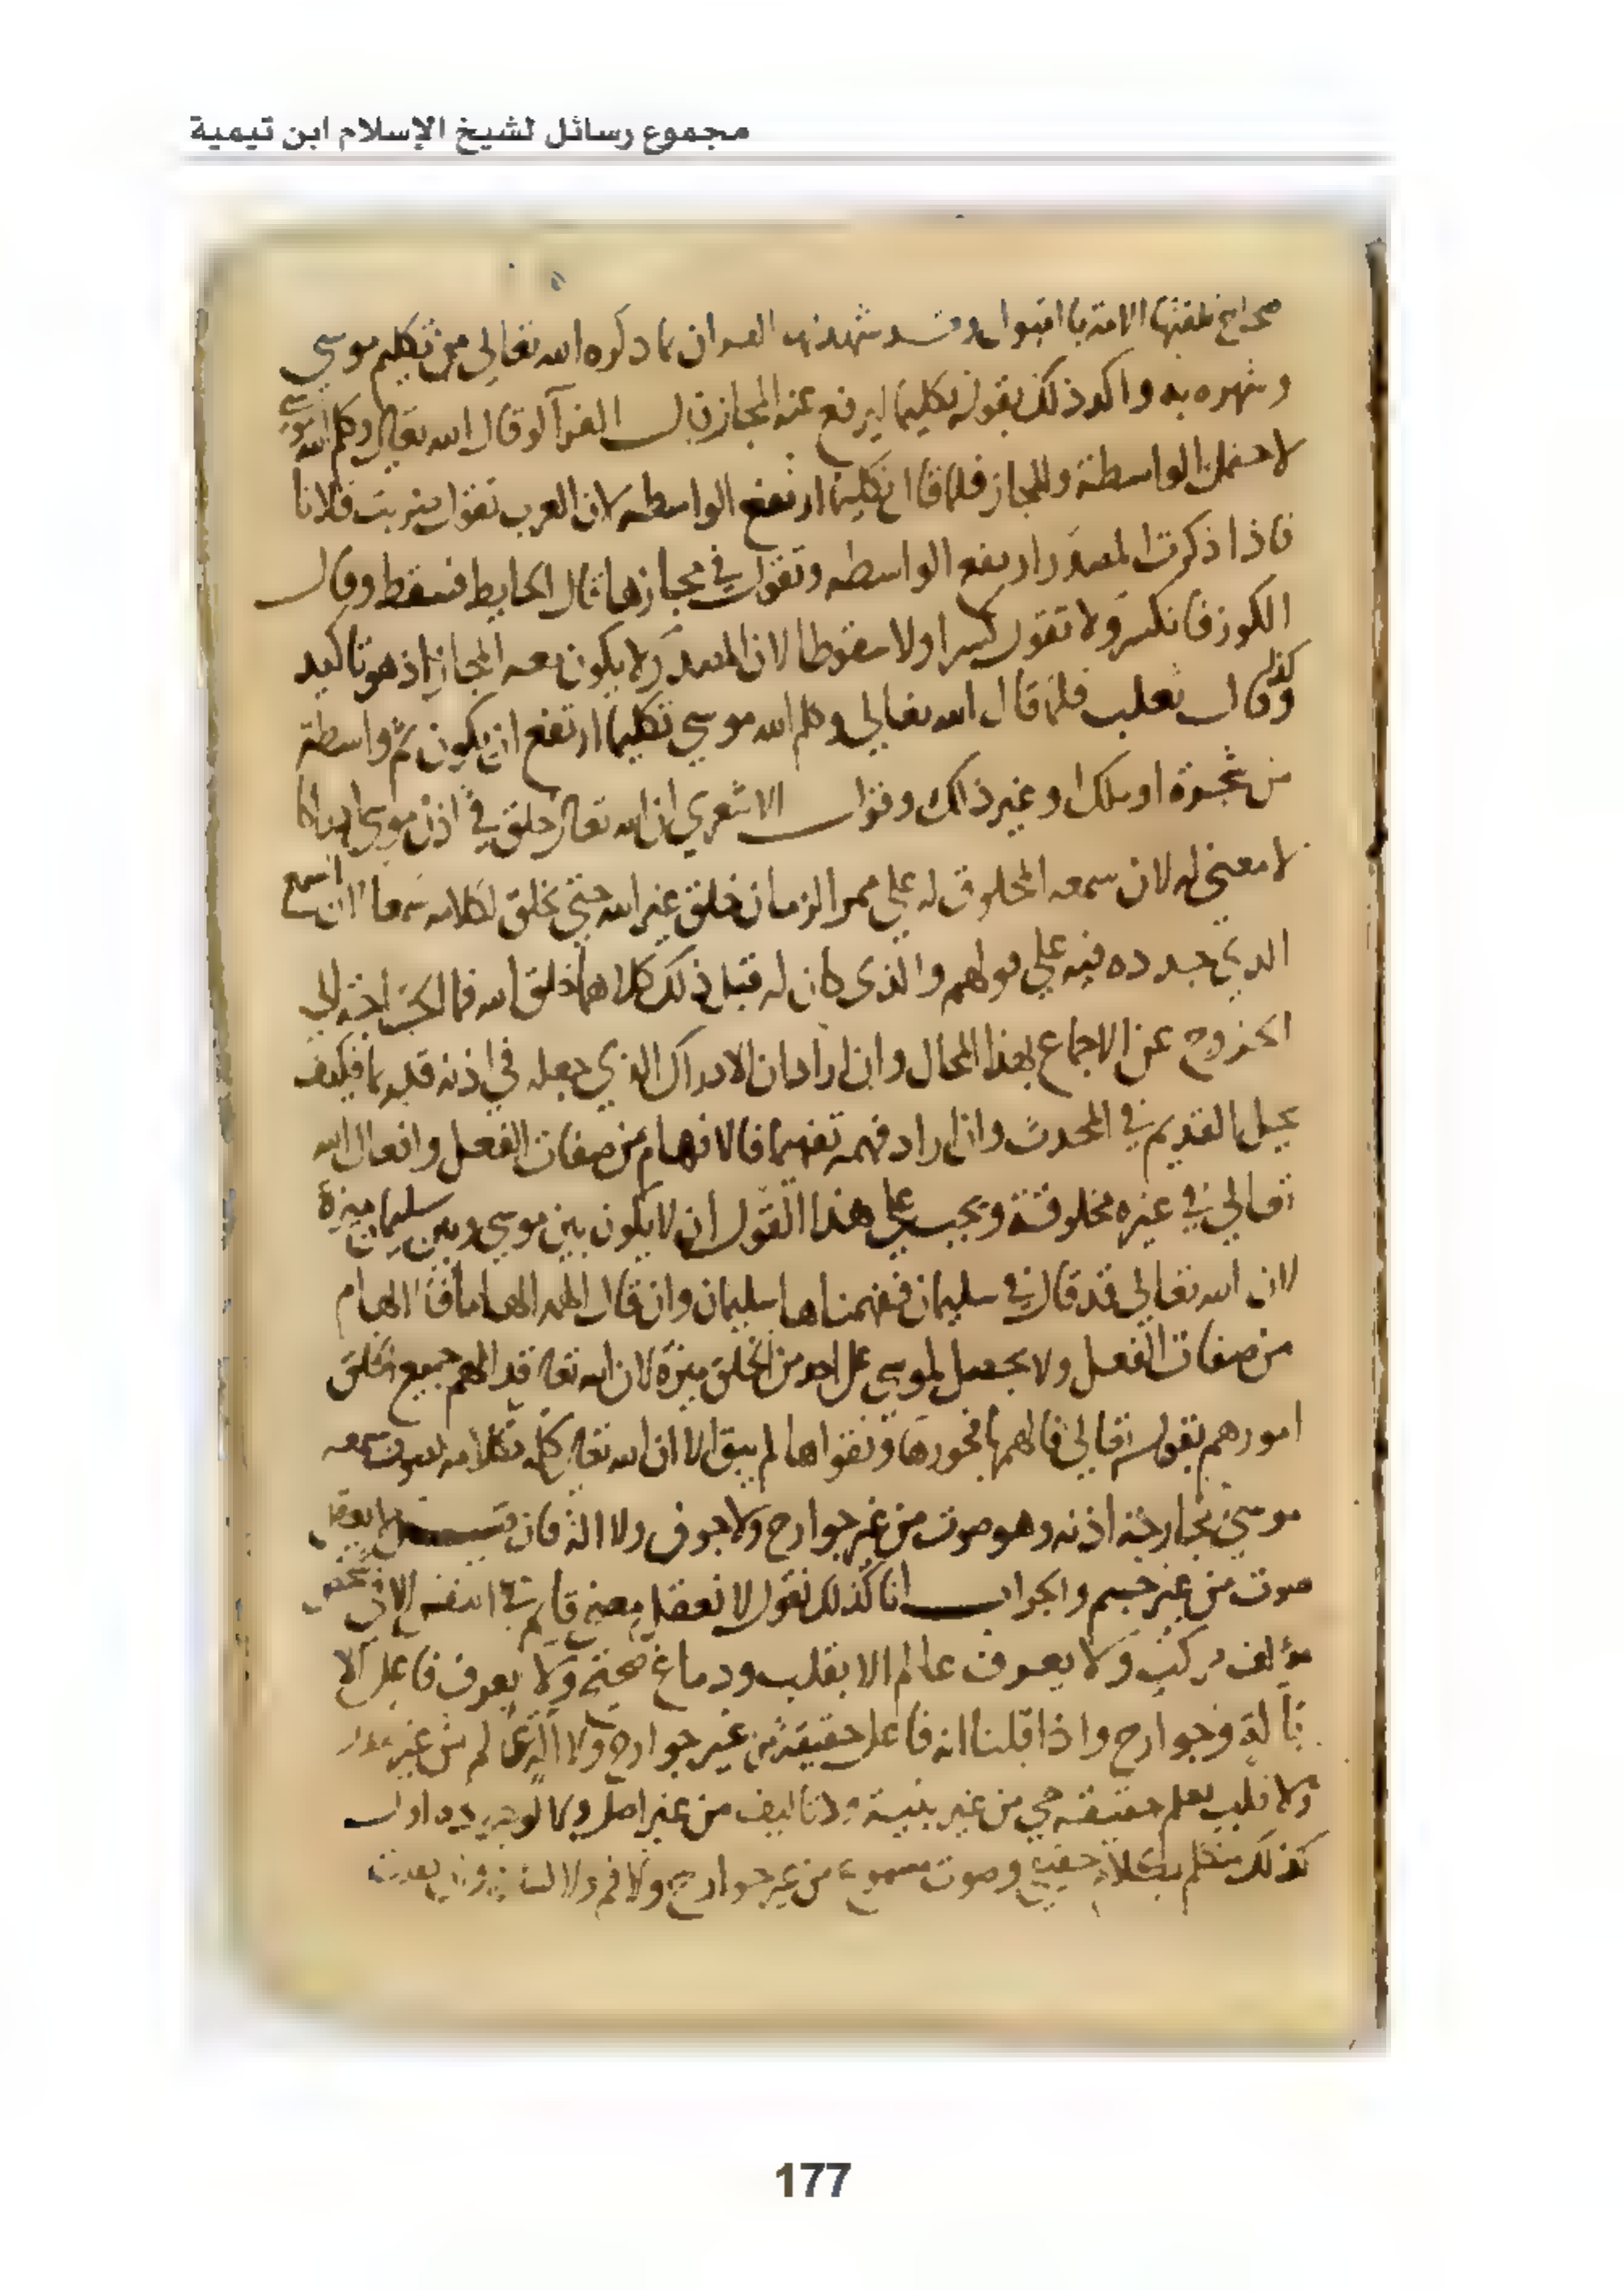 مجموع رسائل لشيخ الإسلام ابن تيمية
صحاح تلقتها الامة بالقبول وقد شهد لها القران بما ذكره الله تعالى من تكليم موسى
وشهره به واكد ذلك بقوله تكليما ليرفع عنه المجاز قال الفرا لو قال الله تعالى وكلم الله موسى
لاحتمل الواسطة والمجاز فلما قال تكليما ارتفع الواسطه لان العرب تقول ضربت فلانا
فاذا ذكرت المصدر ارتفع الواسطه وتقول في مجازها مال الحايط فسقط وقال
الكوز فانكسر ولا تقول كسرا ولا سقوطا لان المصدر لا يكون معه المجاز اذ هو تاكيد
وكذلك قال ثعلب فلما قال الله تعالى وكلم الله موسى تكليما ارتفع ان يكون ثم واسطة
من شجرة او ملك او غير ذلك وقول الاشعري ان الله تعالى خلق في اذن موسى ادراكا
لا معنى له لان سمعه المخلوق له على ممر الزمان خلق غير الله حتى يخلق لكلامه سمعا ان السمع
الذي جدده فيه على قولهم والذي كان له قبل ذلك كلاهما خلق الله فما الحاجة الى
الخروج عن الاجماع بهذا المحال وان اراد ان الادراك الذي جعله في اذنه قديما فكيف
يحل القديم في المحدث وان اراد فهمه تفهيما فالافهام من صفات الفعل وافعال الله
تعالى في غيره مخلوقة ويجب على هذا القول ان لا يكون بين موسى وبين سليمان ميزة
لان الله تعالى قد قال في سليمان ففهمناها سليمان وان قال الهمه الهاما فالالهام
من صفات الفعل ولا يحصل لموسى على احد من الخلق ميزة لان الله تعالى قد الهم جميع الخلق
امورهم بقوله تعالى فالهمها فجورها وتقواها لم يبق الا ان الله تعالى كلمه بكلامه بصوت سمعه
موسى بجارحة اذنه وهو صوت من غير جوارح ولا جوف ولا الة فان قيل لا يعقل
صوت من غير جسم والجواب انا كذلك نقول لا نعقل معنى قايم في النفس الا في شخص
مؤلف مركب ولا يعرف عالم الا بقلب ودماغ ولا يعرف فاعل الا
بالة وجوارح واذا قلنا انه فاعل حقيقة من غير جوارح ولا الة عالم من غير
ولا قلب يعلم حقيقة حي من غير بنية ولا تاليف من غير اصل ولا لوجوده اول
كذلك متكلم بكلام حقيقة وصوت مسموع من غير جوارح ولا فم ولا لسان
177